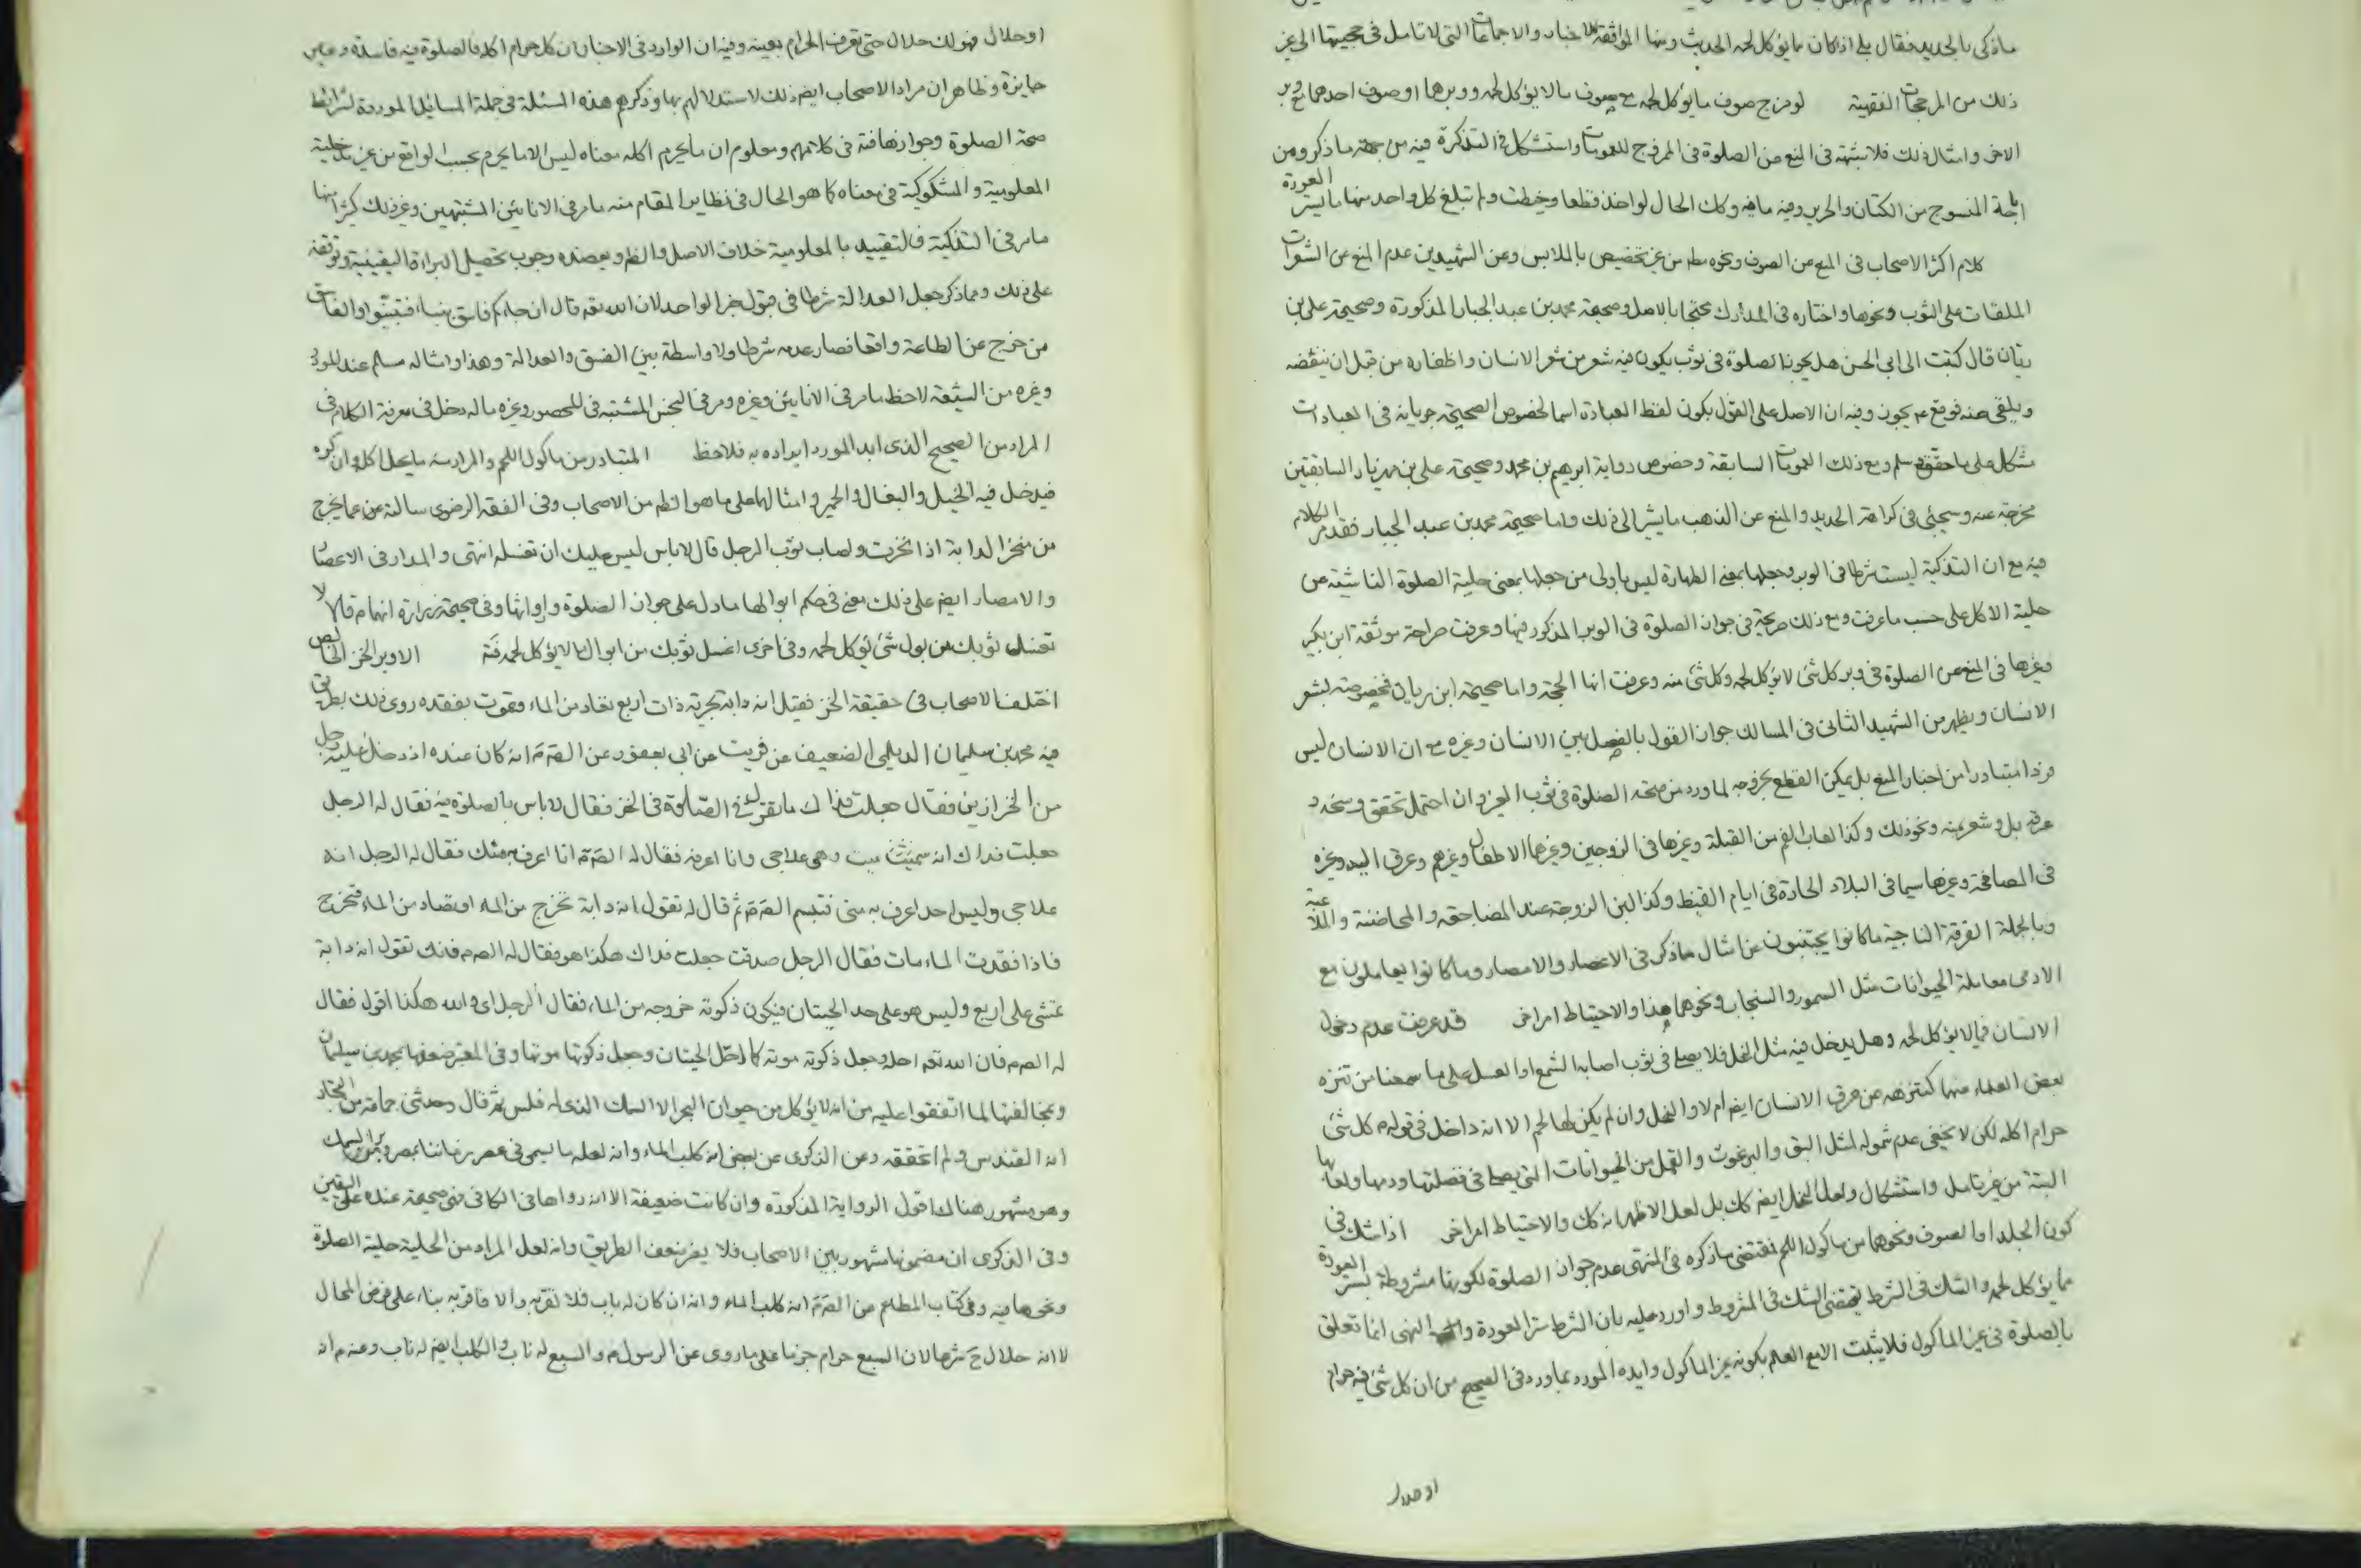 ماذكى بالحديد فقال بلى اذا كان مما يؤكل لحمه الحديث ومنها الموافقة للاخبار والاجماعات التى لا تامل فى حجيتها الى غير
ذلك من المرجحات الفقهية لو مزج صوف ما يؤكل لحمه مع صوف ما لا يؤكل لحمه ووبرها او صوف احدهما مع وبر
الاخر وامثال ذلك فلا شبهة فى المنع من الصلوة فى الممزوج للعمومات واستشكل فى التذكرة فيه من جهة ما ذكر ومن
اباحة المنسوج من الكتان والحرير وفيه ما فيه وكك الحال لو اخذ قطعا وخيطت ولم تبلغ كل واحد منها ما يستر العورة
كلام اكثر الاصحاب فى المنع عن الصوف ونحوه مطم من غير تخصيص بالملابس وعن الشهيدين عدم المنع عن الشعرات
الملقات على الثوب ونحوها واختاره فى المدارك محتجا بالاصل وصحيحة محمد بن عبد الجبار المذكورة وصحيحة على بن
ريان قال كتبت الى ابى الحسن هل يجوز الصلوة فى ثوب يكون فيه شعر من شعر الانسان واظفاره من قبل ان ينفضه
ويلقى عنه فوقع ع يجوز وفيه ان الاصل على القول بكون لفظ العبادة اسما لخصوص الصحيحة جريانه فى العبادات
مشكل على ما حقق وسلم ومع ذلك العمومات السابقة وخصوص رواية ابرهيم بن محمد وصحيحة على بن مهزيار السابقتين
مخرجة عنه وسيجئ فى كراهة الحديد والمنع عن الذهب ما يشير الى ذلك واما صحيحة محمد بن عبد الجبار فقد مر الكلام
فيه مع ان التذكية ليست شرطا فى الوبر وجعلها بمعنى الطهارة ليس باولى من جعلها بمعنى حلية الصلوة الناشئة من
حلية الاكل على حسب ما عرفت ومع ذلك صريحة فى جواز الصلوة فى الوبر المذكور فيها وعرفت صراحة موثقة ابن بكير
وغيرها فى المنع عن الصلوة فى وبر كل شئ لا يؤكل لحمه وكل شئ منه وعرفت انها الحجة واما صحيحة ابن ريان فمخصوصة بشعر
الانسان ويظهر من الشهيد الثانى فى المسالك جواز القول بالفصل بين الانسان وغيره مع ان الانسان ليس
فردا متبادرا من اخبار المنع بل يمكن القطع بخروجه لما ورد من صحة الصلوة فى ثوب الغير وان احتمل تحقق وسخه و
عرقه بل وشعر منه ونحو ذلك وكذا لعاب الفم من القبلة وغيرها فى الزوجين وغيرها الاطفال وغيرهم وعرق اليد وغيره
فى المصافحة وغيرها سيما فى البلاد الحادة فى ايام القيظ وكذا لبن الزوجة عند المضاجعة والمحاضنة والملاعبة
وبالجملة الفرقة الناجية ما كانوا يجتنبون عن مثال ما ذكر فى الاعصار والامصار وما كانوا يعاملون مع
الادمى معاملة الحيوانات مثل السمور والسنجاب ونحوهما هذا والاحتياط امر اخر قد عرفت عدم دخول
الانسان فيما لا يؤكل لحمه وهل يدخل فيه مثل النحل فلا يصلى فى ثوب اصابه الشمع او العسل على ما سمعنا من تنزه
بعض العلماء منهما كتنزهه عن عرق الانسان ايض ام لا والنحل وان لم يكن لها لحم الا انه داخل فى قوله ع كل شئ
حرام اكله لكن لا يخفى عدم شموله لمثل البق والبرغوث والقمل من الحيوانات التى يصلى فى فضلتها ودمها ولعابها
البتة من غير تامل واستشكال ولعل النحل ايض كك بل لعل الاظهر انه كك والاحتياط امر اخر اذا شك فى
كون الجلد او الصوف ونحوهما من ماكول اللحم فمقتضى ما ذكره فى المنتهى عدم جواز الصلوة لكونها مشروطة بستر العورة
مما يؤكل لحمه والشك فى الشرط يقتضى الشك فى المشروط واورد عليه بان الشرط ستر العورة والنهى انما تعلق
بالصلوة فى غير الماكول فلا يثبت الا مع العلم بكونه غير الماكول وايده المورد بما ورد فى الصحيح من ان كل شئ فيه حرام
او حلال
او حلال فهو لك حلال حتى تعرف الحرام بعينه وفيه ان الوارد فى الاخبار ان كل حرام اكله فالصلوة فيه فاسدة وغير
جايزة وظاهر ان مراد الاصحاب ايض ذلك لاستدلالهم بها وذكرهم هذه المسئلة فى جملة المسائل الموردة لشرائط
صحة الصلوة وجوازها فتة فى كلامهم ومعلوم ان ما يحرم اكله معناه ليس الا ما يحرم بحسب الواقع من غير مدخلية
المعلومية والمشكوكية فى معناه كما هو الحال فى نظاير المقام منه ما مر فى الانائين المشتبهين وغير ذلك كثير منها
ما مر فى التذكية فالتقييد بالمعلومية خلاف الاصل والظ ويعضده وجوب تحصيل البراءة اليقينية وتوقفه
على ذلك ومما ذكر جعل العدالة شرطا فى قبول خبر الواحد لان الله تعه قال ان جاءكم فاسق بنباء فتبينوا والفاسق
من خرج عن الطاعة واقعا فصار عدمه شرطا ولا واسطة بين الفسق والعدالة وهذا وامثاله مسلم عند المورد
وغيره من الشيعة لاحظ ما مر فى الانائين وغيره ومر فى النجس المشتبه فى المحصور وغيره ما له دخل فى معرفة الكلام فى
المراد من الصحيح الذى ايد المورد ايراده به فلاحظ المتبادر من ماكول اللحم والمراد منه ما يحل اكله وان كره
فيدخل فيه الخيل والبغال والحمير وامثالها على ما هو الظ من الاصحاب وفى الفقه الرضوى سالته عن عما يخرج
من منخر الدابة اذا نخرت فاصاب ثوب الرجل قال لا باس ليس عليك ان تغسله انتهى والمدار فى الاعصار
والامصار ايض على ذلك معنى فى حكم ابوالها ما دل على جواز الصلوة وارواثها وفى صحيحة زرارة انهما ع قالا لا
تغسل ثوبك من بول شئ يؤكل لحمه وفى اخرى اغسل ثوبك من ابوال ما لا يؤكل لحمه فتة الا وبر الخز الخالص
اختلف الاصحاب فى حقيقة الخز فقيل انه دابة بحرية ذات اربع تصاد من الماء وتموت بفقده روى ذلك بطريق
فيه محمد بن سليمان الديلمى الضعيف عن قريب عن ابى يعفور عن الصم انه كان عنده اذ دخل عليه رجل
من الخرازين فقال جعلت فداك ما تقول فى الصلوة فى الخز فقال لا باس بالصلوة فيه فقال له الرجل
جعلت فداك انه ميت وهى علاجى وانا اعرفه فقال له الصم انا اعرف به منك فقال له الرجل انه
علاجى وليس احد اعرف به منى فتبسم الصم ثم قال له تقول انه دابة تخرج من الماء او تصاد من الماء فتخرج
فاذا فقدت الماء مات فقال الرجل صدقت جعلت فداك هكذا هو فقال له الصم فانك تقول انه دابة
تمشى على اربع وليس هو على حد الحيتان فيكون ذكوته خروجه من الماء فقال الرجل اى والله هكذا اقول فقال
له الصم فان الله تعه احله وجعل ذكوته موته كما احل الحيتان وجعل ذكوتها موتها وفى المعتبر ضعفها بمحمد بن سليمان
وبمخالفتها لما اتفقوا عليه من انه لا يؤكل من حيوان البحر الا السمك الذى له فلس ثم قال وحدثنى جماعة من التجار
انه القندس ولم اتحققه وعن الذكرى عن بعض انه كلب الماء وانه لعله ما يسمى فى عصر زماننا بمصر وبر السمك
وهو مشهور هناك اقول الرواية المذكورة وان كانت ضعيفة الا انه رواها فى الكافى فهى صحيحة عنده على اليقين
وفى الذكرى ان مضمونها مشهور بين الاصحاب فلا يضر ضعف الطريق وانه لعل المراد من الحلية حلية الصلوة
ونحوها فيه وفى كتاب المطاعم من الصم انه كلب الماء وانه ان كان له ناب فلا تقربه والا فاقربه بناء على فرض المحال
لا انه حلال ح شرعا لان السبع حرام جزما على ما روى عن الرسول ص والسبع له ناب والكلب ايض له ناب وعنه م انه